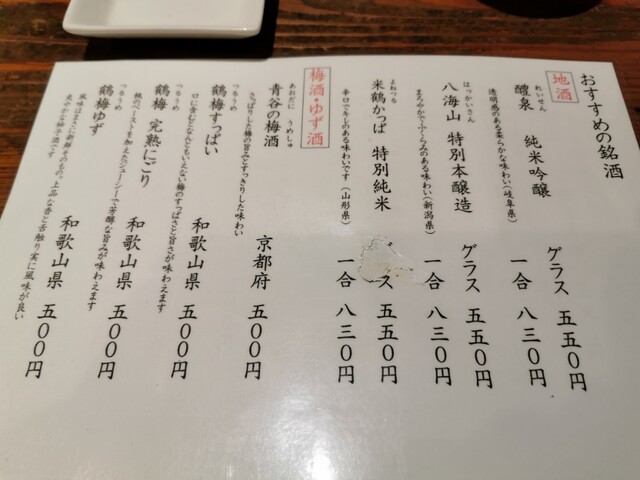 おすすめの銘酒
地酒
れいせん
醴泉 純米吟醸
グラス 五五〇円
透明感のある柔らかな味わい(岐阜県)
一合 八三〇円
はっかいさん
八海山 特別本醸造
グラス 五五〇円
まろやかでふくらみのある味わい(新潟県)
一合 八三〇円
よねつる
米鶴かっぱ 特別純米
ス 五五〇円
辛口でキレのある味わいです(山形県)
一合 八三〇円
梅酒・ゆず酒
あおだに うめしゅ
青谷の梅酒 京都府 五〇〇円
さっぱりした梅の旨みとすっきりした味わい
つるうめ
鶴梅すっぱい 和歌山県 五〇〇円
口に含むとなんともいえない梅のすっぱさと旨さが味わえます
つるうめ
鶴梅 完熟にごり 和歌山県 五〇〇円
桃のペーストを加えたフルーティーで芳醇な旨みが味わえます
つるうめ
鶴梅ゆず 和歌山県 五〇〇円
風味はまさに新鮮そのもの。上品な香と舌触り実に風味が良い
爽やかな柚子酒です